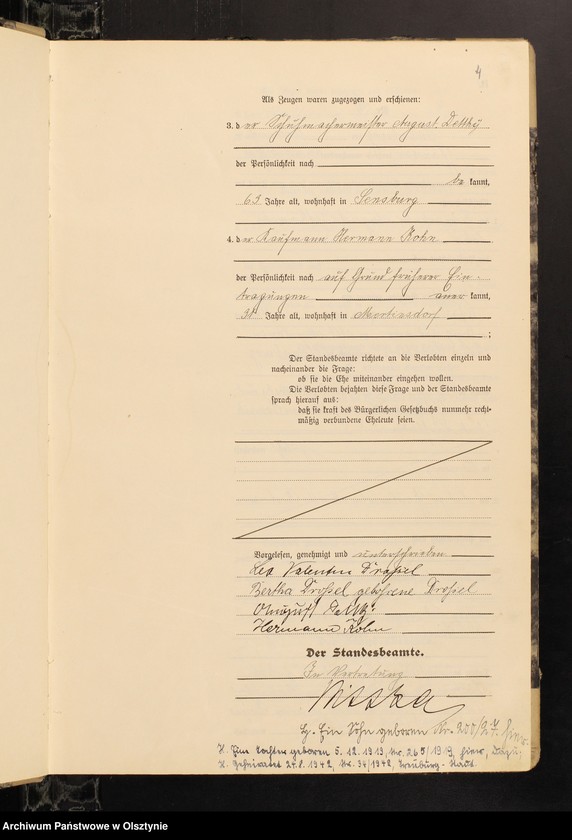 4
Als Zeugen waren zugezogen und erschienen:
3. der Schuhmachermeister August
der Persönlichkeit nach
be kannt,
63 Jahre alt, wohnhaft in Sensburg
4. der Kaufmann Hermann Kohn
der Persönlichkeit nach auf Grund früherer Ein-
tragungen aner kannt,
Jahre alt, wohnhaft in
;
Der Standesbeamte richtete an die Verlobten einzeln und
nacheinander die Frage:
ob sie die Ehe miteinander eingehen wollen.
Die Verlobten bejahten diese Frage und der Standesbeamte
sprach hierauf aus:
daß sie kraft des Bürgerlichen Gesetzbuchs nunmehr recht-
mäßig verbundene Eheleute seien.
Vorgelesen, genehmigt und unterschrieben
Leo Valentin Drossel
Bertha Drossel geborene Drossel
August
Hermann Kohn
Der Standesbeamte.
In Vertretung
H. Ein Sohn geboren Nr. 200/27. hier.
H. Eine Tochter geboren 5.12.1919, Nr. 265/1919, hier,
H. Geheiratet 27.8.1942, Nr. 34/1942, Treuburg-Stadt.
Archiwum Państwowe w Olsztynie